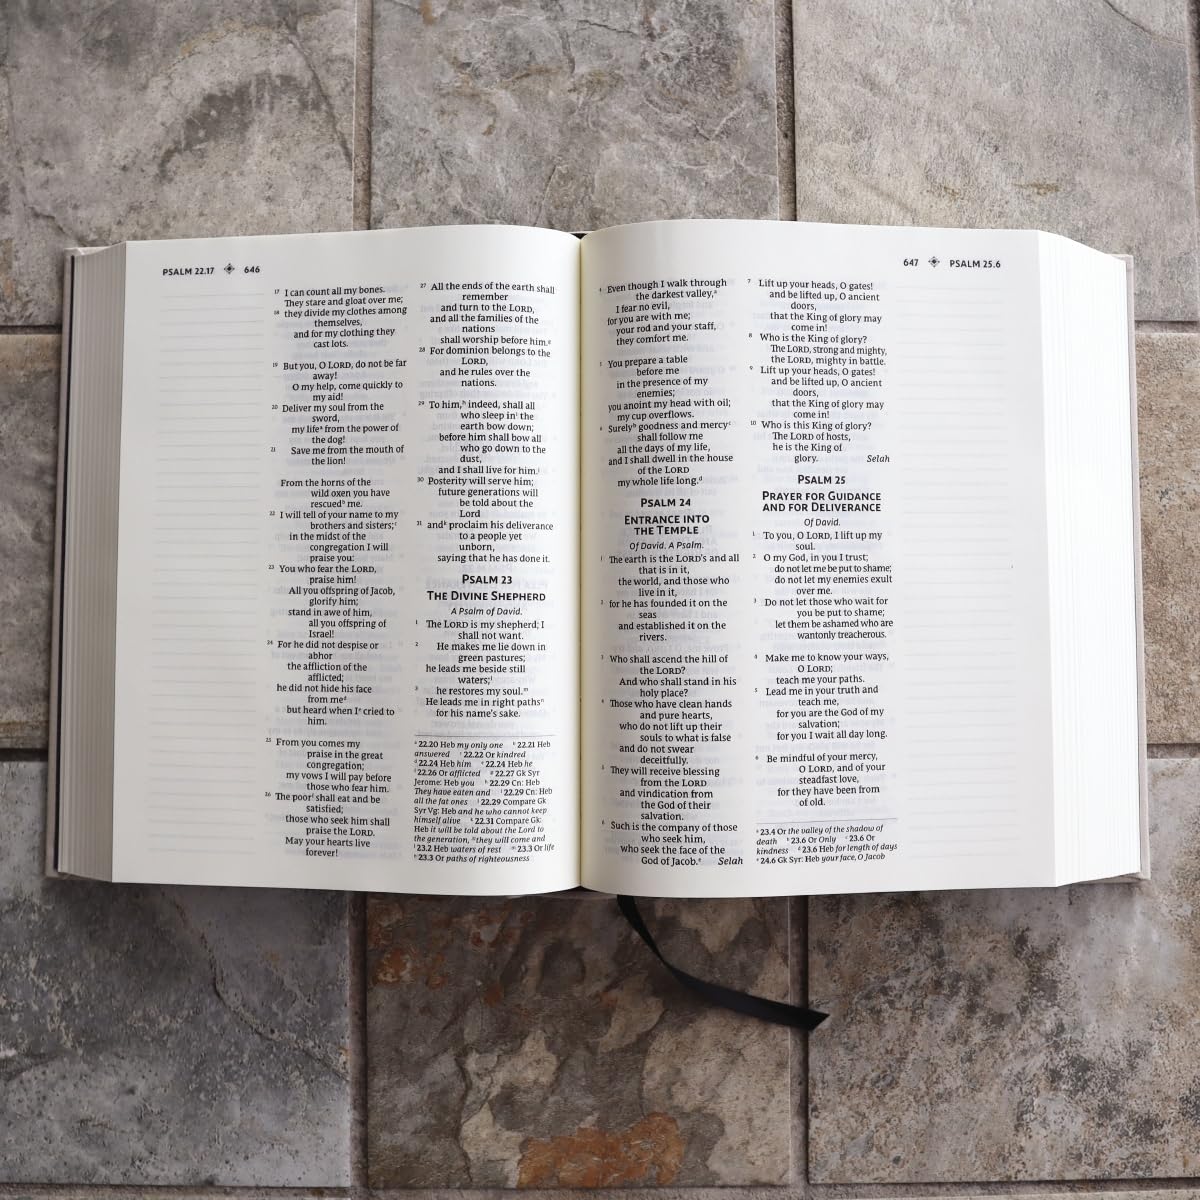 PSALM 22.17 646
17 I can count all my bones.
They stare and gloat over me;
18 they divide my clothes among
themselves,
and for my clothing they
cast lots.
19 But you, O LORD, do not be far
away!
O my help, come quickly to
my aid!
20 Deliver my soul from the
sword,
my lifeᵃ from the power of
the dog!
21 Save me from the mouth of
the lion!
From the horns of the
wild oxen you have
rescuedᵇ me.
22 I will tell of your name to my
brothers and sisters;ᶜ
in the midst of the
congregation I will
praise you:
23 You who fear the LORD,
praise him!
All you offspring of Jacob,
glorify him;
stand in awe of him,
all you offspring of
Israel!
24 For he did not despise or
abhor
the affliction of the
afflicted;
he did not hide his face
from meᵈ
but heard when Iᵉ cried to
him.
25 From you comes my
praise in the great
congregation;
my vows I will pay before
those who fear him.
26 The poorᶠ shall eat and be
satisfied;
those who seek him shall
praise the LORD.
May your hearts live
forever!
27 All the ends of the earth shall
remember
and turn to the LORD,
and all the families of the
nations
shall worship before him.ᵍ
28 For dominion belongs to the
LORD,
and he rules over the
nations.
29 To him,ʰ indeed, shall all
who sleep inⁱ the
earth bow down;
before him shall bow all
who go down to the
dust,
and I shall live for him.ʲ
30 Posterity will serve him;
future generations will
be told about the
Lord
31 andᵏ proclaim his deliverance
to a people yet
unborn,
saying that he has done it.
PSALM 23
THE DIVINE SHEPHERD
A Psalm of David.
1 The LORD is my shepherd; I
shall not want.
2 He makes me lie down in
green pastures;
he leads me beside still
waters;ˡ
3 he restores my soul.ᵐ
He leads me in right pathsⁿ
for his name's sake.
ᵃ 22.20 Heb my only one ᵇ 22.21 Heb
answered ᶜ 22.22 Or kindred
ᵈ 22.24 Heb him ᵉ 22.24 Heb he
ᶠ 22.26 Or afflicted ᵍ 22.27 Gk Syr
Jerome: Heb you ʰ 22.29 Cn: Heb
They have eaten and ⁱ 22.29 Cn: Heb
all the fat ones ʲ 22.29 Compare Gk
Syr Vg: Heb and he who cannot keep
himself alive ᵏ 22.31 Compare Gk:
Heb it will be told about the Lord to
the generation, ³¹they will come and
ˡ 23.2 Heb waters of rest ᵐ 23.3 Or life
ⁿ 23.3 Or paths of righteousness
647 PSALM 25.6
4 Even though I walk through
the darkest valley,ᵃ
I fear no evil,
for you are with me;
your rod and your staff,
they comfort me.
5 You prepare a table
before me
in the presence of my
enemies;
you anoint my head with oil;
my cup overflows.
6 Surelyᵇ goodness and mercyᶜ
shall follow me
all the days of my life,
and I shall dwell in the house
of the LORD
my whole life long.ᵈ
PSALM 24
ENTRANCE INTO
THE TEMPLE
Of David. A Psalm.
1 The earth is the LORD's and all
that is in it,
the world, and those who
live in it,
2 for he has founded it on the
seas
and established it on the
rivers.
3 Who shall ascend the hill of
the LORD?
And who shall stand in his
holy place?
4 Those who have clean hands
and pure hearts,
who do not lift up their
souls to what is false
and do not swear
deceitfully.
5 They will receive blessing
from the LORD
and vindication from
the God of their
salvation.
6 Such is the company of those
who seek him,
who seek the face of the
God of Jacob.ᵉ Selah
7 Lift up your heads, O gates!
and be lifted up, O ancient
doors,
that the King of glory may
come in!
8 Who is the King of glory?
The LORD, strong and mighty,
the LORD, mighty in battle.
9 Lift up your heads, O gates!
and be lifted up, O ancient
doors,
that the King of glory may
come in!
10 Who is this King of glory?
The LORD of hosts,
he is the King of
glory. Selah
PSALM 25
PRAYER FOR GUIDANCE
AND FOR DELIVERANCE
Of David.
1 To you, O LORD, I lift up my
soul.
2 O my God, in you I trust;
do not let me be put to shame;
do not let my enemies exult
over me.
3 Do not let those who wait for
you be put to shame;
let them be ashamed who are
wantonly treacherous.
4 Make me to know your ways,
O LORD;
teach me your paths.
5 Lead me in your truth and
teach me,
for you are the God of my
salvation;
for you I wait all day long.
6 Be mindful of your mercy,
O LORD, and of your
steadfast love,
for they have been from
of old.
ᵃ 23.4 Or the valley of the shadow of
death ᵇ 23.6 Or Only ᶜ 23.6 Or
kindness ᵈ 23.6 Heb for length of days
ᵉ 24.6 Gk Syr: Heb your face, O Jacob